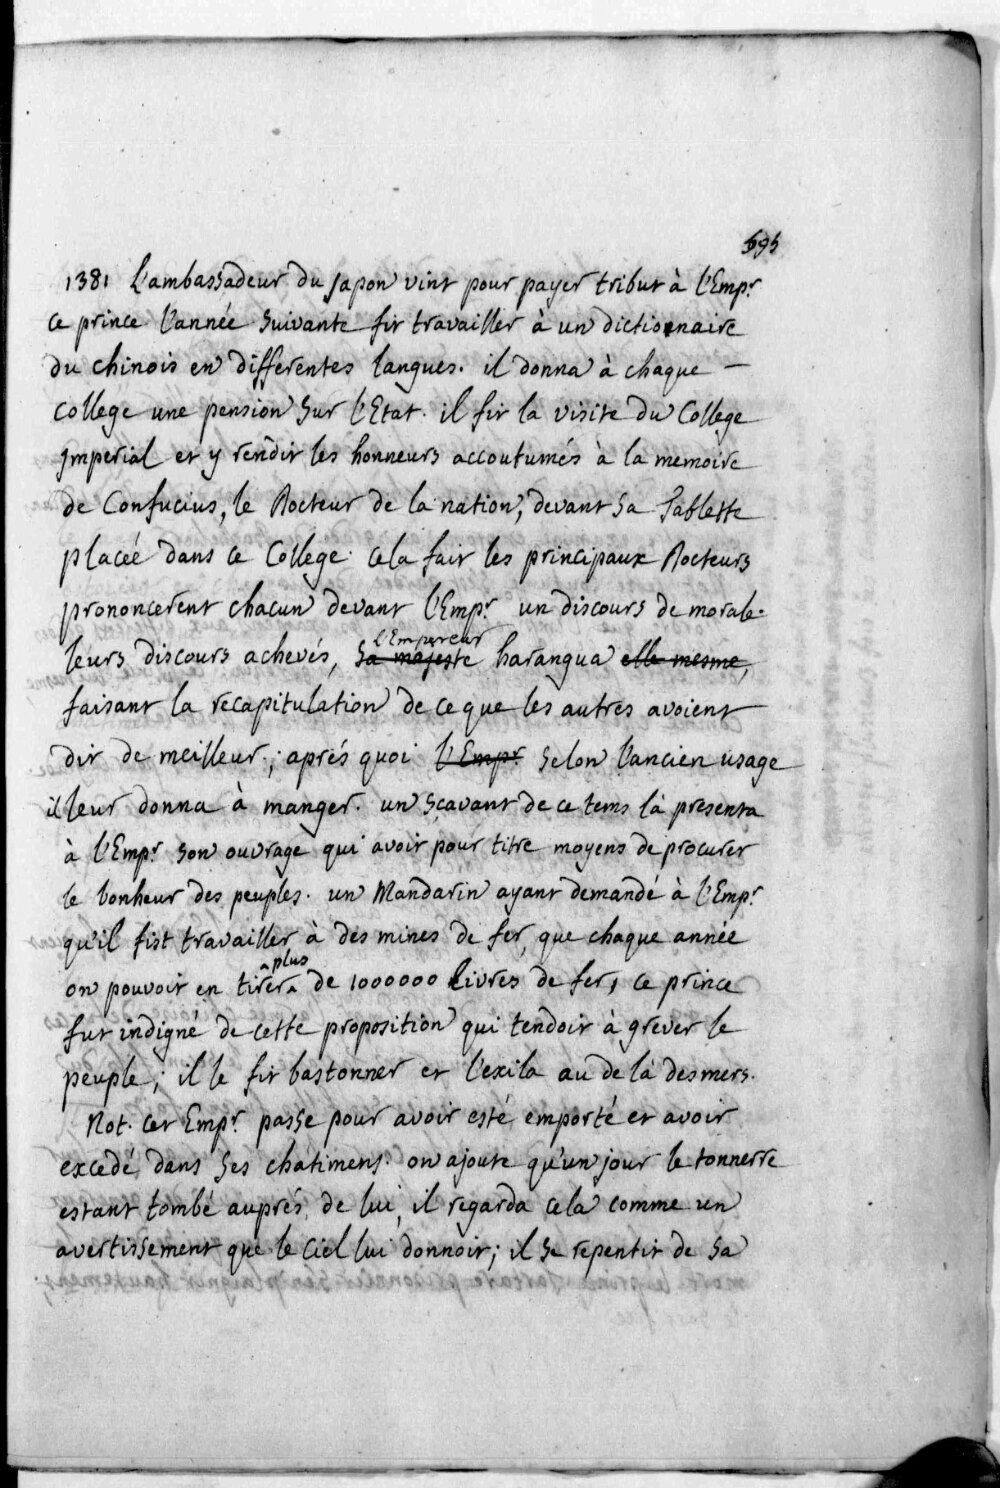 595
1381 L'ambassadeur du Japon vint pour payer tribut à l'Empr
ce prince l'année suivante fit travailler à un dictionnaire
du chinois en differentes langues. il donna à chaque —
college une pension sur l'Etat. il fit la visite du College
Imperial et y rendit les honneurs accoutumés à la memoire
de Confucius, le Docteur de la nation, devant sa Tablette
placée dans ce College. cela fait les principaux Docteurs
prononcerent chacun devant l'Empr un discours de morale.
l'Empereur
leurs discours achevés, sa majesté harangua elle mesme,
faisant la recapitulation de ce que les autres avoient
dit de meilleur; aprés quoi l'Empr selon l'ancien usage
il leur donna à manger. un sçavant de ce tems là presenta
à l'Empr son ouvrage qui avoit pour titre moyens de procurer
le bonheur des peuples. un Mandarin ayant demandé à l'Empr
qu'il fist travailler à des mines de fer, que chaque année
plus
on pouvoit en tirer de 1000000 livres de fer, ce prince
fut indigné de cette proposition qui tendoit à grever le
peuple; il le fit bastonner et l'exila au de là des mers.
Not. cet Empr passe pour avoir esté emporté et avoir
excedé dans ses chatimens. on ajoute qu'un jour le tonnerre
estant tombé auprés de lui, il regarda cela comme un
avertissement que le Ciel lui donnoit; il se repentit de sa